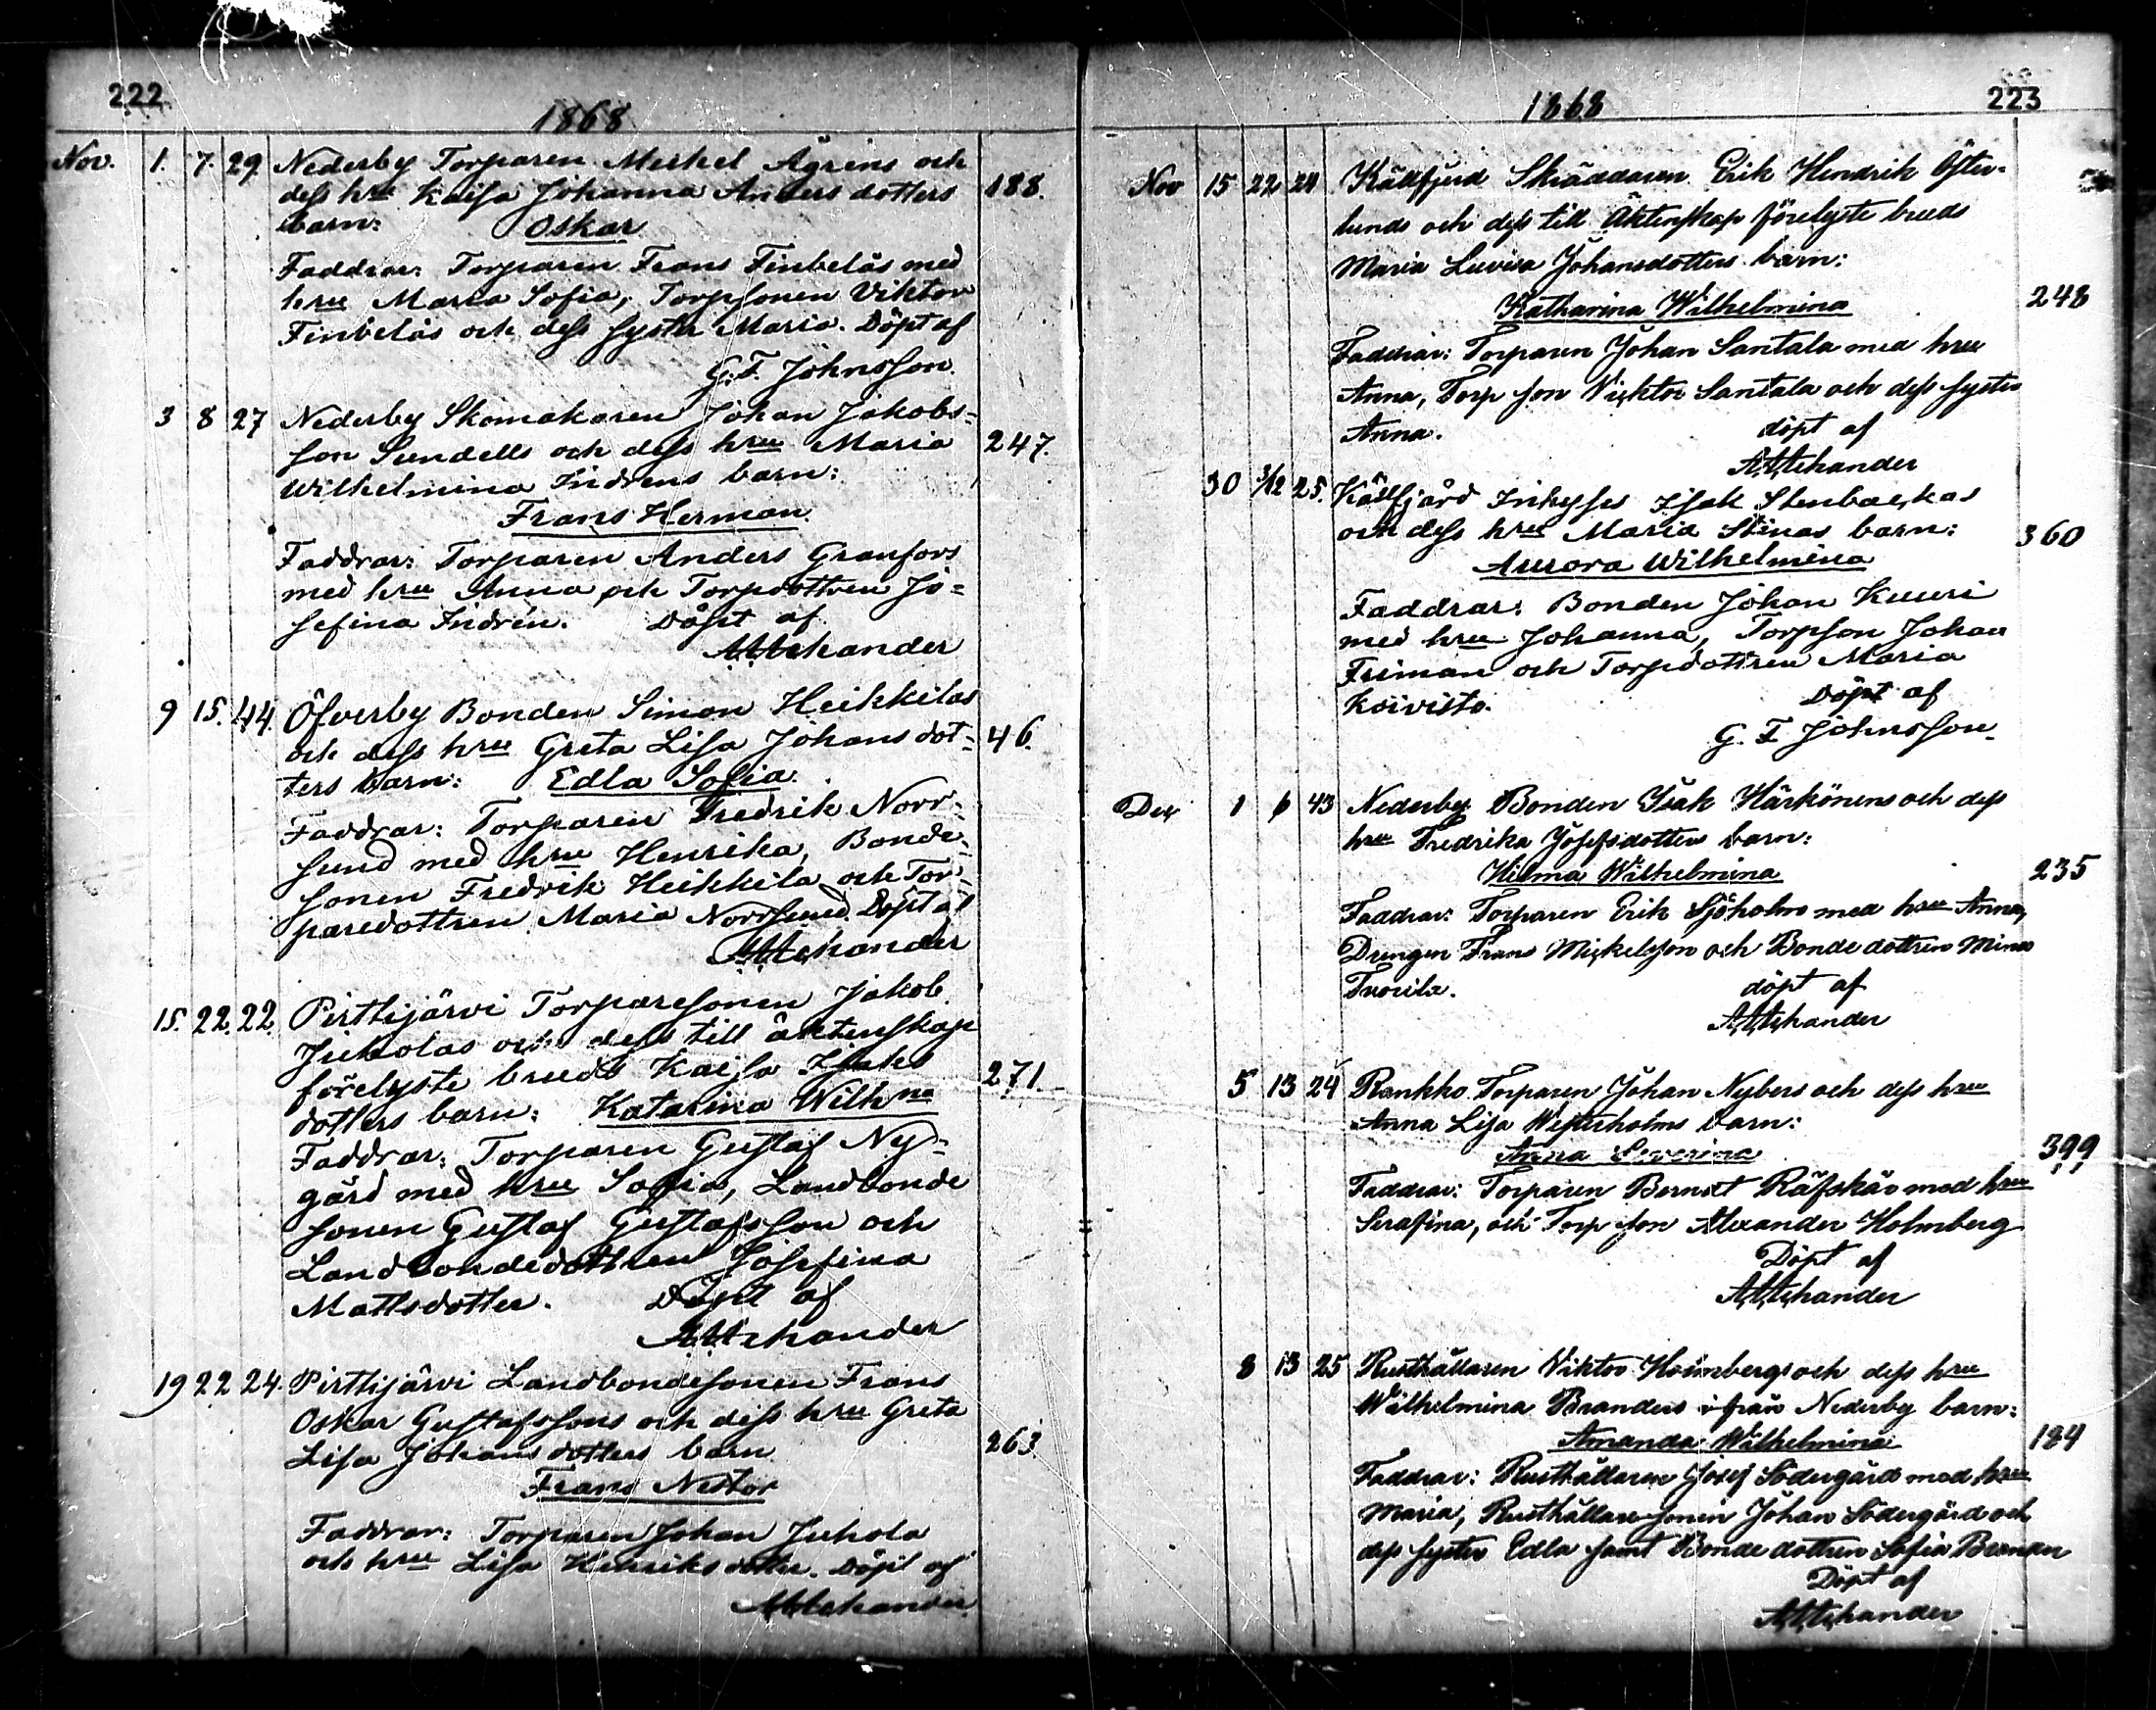 222
1868
Nov. 1. 7. 29. Nederby Torparen Mickel Ågrens och
dess hru Kaisa Johanna Anders dotters 188.
barn: Oskar
Faddrar: Torparen Frans Finbelås med
hru Maria Sofia, Torpsonen Viktor
Finbelås och dess syster Maria. Döpt af
G. F. Johnsson.
3 8 27 Nederby Skomakaren Johan Jakobs=
son Sundells och dess hru Maria 247.
Wilhelmina Indrens barn:
Frans Herman.
Faddrar: Torparen Anders Granfors
med hru Anna och Torpdottren Jo=
sefina Indrén. Döpt af
9 15. 44. Öfverby Bonden Simon Heikkilas
och dess hru Greta Lisa Johans dot= 46.
ters barn: Edla Sofia.
Faddrar: Torparen Fredrik Norr=
sund med hru Henrika, Bonde=
sonen Fredrik Heikkila och Tor=
paredottren Maria Norrsund. Döpt af
15. 22. 22. Pirttijärvi Torparesonen Jakob
Juholas och dess till äktenskap
förelyste bruds Kaisa Isaks 271.
dotters barn: Katarina Wilhna
Faddrar: Torparen Gustaf Ny=
gård med hru Sofia, Landbonde
sonen Gustaf Gustafsson och
Landbondedottren Josefina
Mattsdotter. Döpt af
19 22 24. Pirttijärvi Landbondesonen Frans
Oskar Gustafssons och dess hru Greta
Lisa Johans dotters barn 263.
Frans Nestor
Faddrar: Torparen Johan Juhola
och hru Lisa Henriks dotter. Döpt af
223
1868
Nov 15 22 24 Källfjerd Skräddaren Erik Hendrik Öster=
lunds och dess till Äktenskap förelyste bruds
Maria Lovisa Johansdotters barn:
Katharina Wilhelmina 248
Faddrar: Torparen Johan Santala med hru
Anna, Torp son Vicktor Santala och dess syster
Anna. döpt af
30 3/12 25. Källfjärd Inhyses Isak Stenbackas
och dess hru Maria Stinas barn: 360
Aurora Wilhelmina
Faddrar: Bonden Johan Kuuri
med hru Johanna, Torpson Johan
Friman och Torpdottren Maria
Koivisto. Döpt af
G. F Johnsson.
Dec 1 6 43 Nederby Bonden Isak Härkönens och dess
hru Fredrika Josefsdotters barn:
Hilma Wilhelmina 235
Faddrar: Torparen Erik Sjöholm med hru Anna,
Drengen Frans Mickelsson och Bonde dottren Mina
Tuorila. döpt af
5 13 24 Rankko Torparen Johan Nybers och dess hru
Anna Lisa Westerholms barn:
Anna Severina 399
Faddrar: Torparen Berndt Räfskär med hru
Serafina, och Torp son Alexander Holmberg
Döpt af
8 13 25 Rusthållaren Viktor Holmbergs och dess hru
Wilhelmina Branders ifrån Nederby barn:
Amanda Wilhelmina 184
Faddrar: Rusthållaren Josef Södergård med hru
Maria, Rusthållaresonen Johan Södergård och
dess syster Edla samt Bonde dottren Sofia
Döpt af